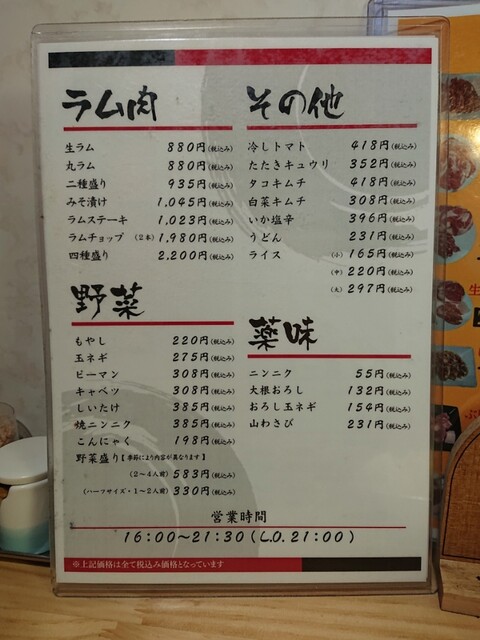 ラム肉
生ラム 880円(税込み)
丸ラム 880円(税込み)
二種盛り 935円(税込み)
みそ漬け 1,045円(税込み)
ラムステーキ 1,023円(税込み)
ラムチョップ (2本) 1,980円(税込み)
四種盛り 2,200円(税込み)
野菜
もやし 220円(税込み)
玉ネギ 275円(税込み)
ピーマン 308円(税込み)
キャベツ 308円(税込み)
しいたけ 385円(税込み)
焼ニンニク 385円(税込み)
こんにゃく 198円(税込み)
野菜盛り【季節により内容が異なります】
(2〜4人前) 583円(税込み)
(ハーフサイズ・1〜2人前) 330円(税込み)
その他
冷しトマト 418円(税込み)
たたきキュウリ 352円(税込み)
タコキムチ 418円(税込み)
白菜キムチ 308円(税込み)
いか塩辛 396円(税込み)
うどん 231円(税込み)
ライス (小) 165円(税込み)
(中) 220円(税込み)
(大) 297円(税込み)
薬味
ニンニク 55円(税込み)
大根おろし 132円(税込み)
おろし玉ネギ 154円(税込み)
山わさび 231円(税込み)
営業時間
16:00〜21:30(L.O. 21:00)
※上記価格は全て税込み価格となっています